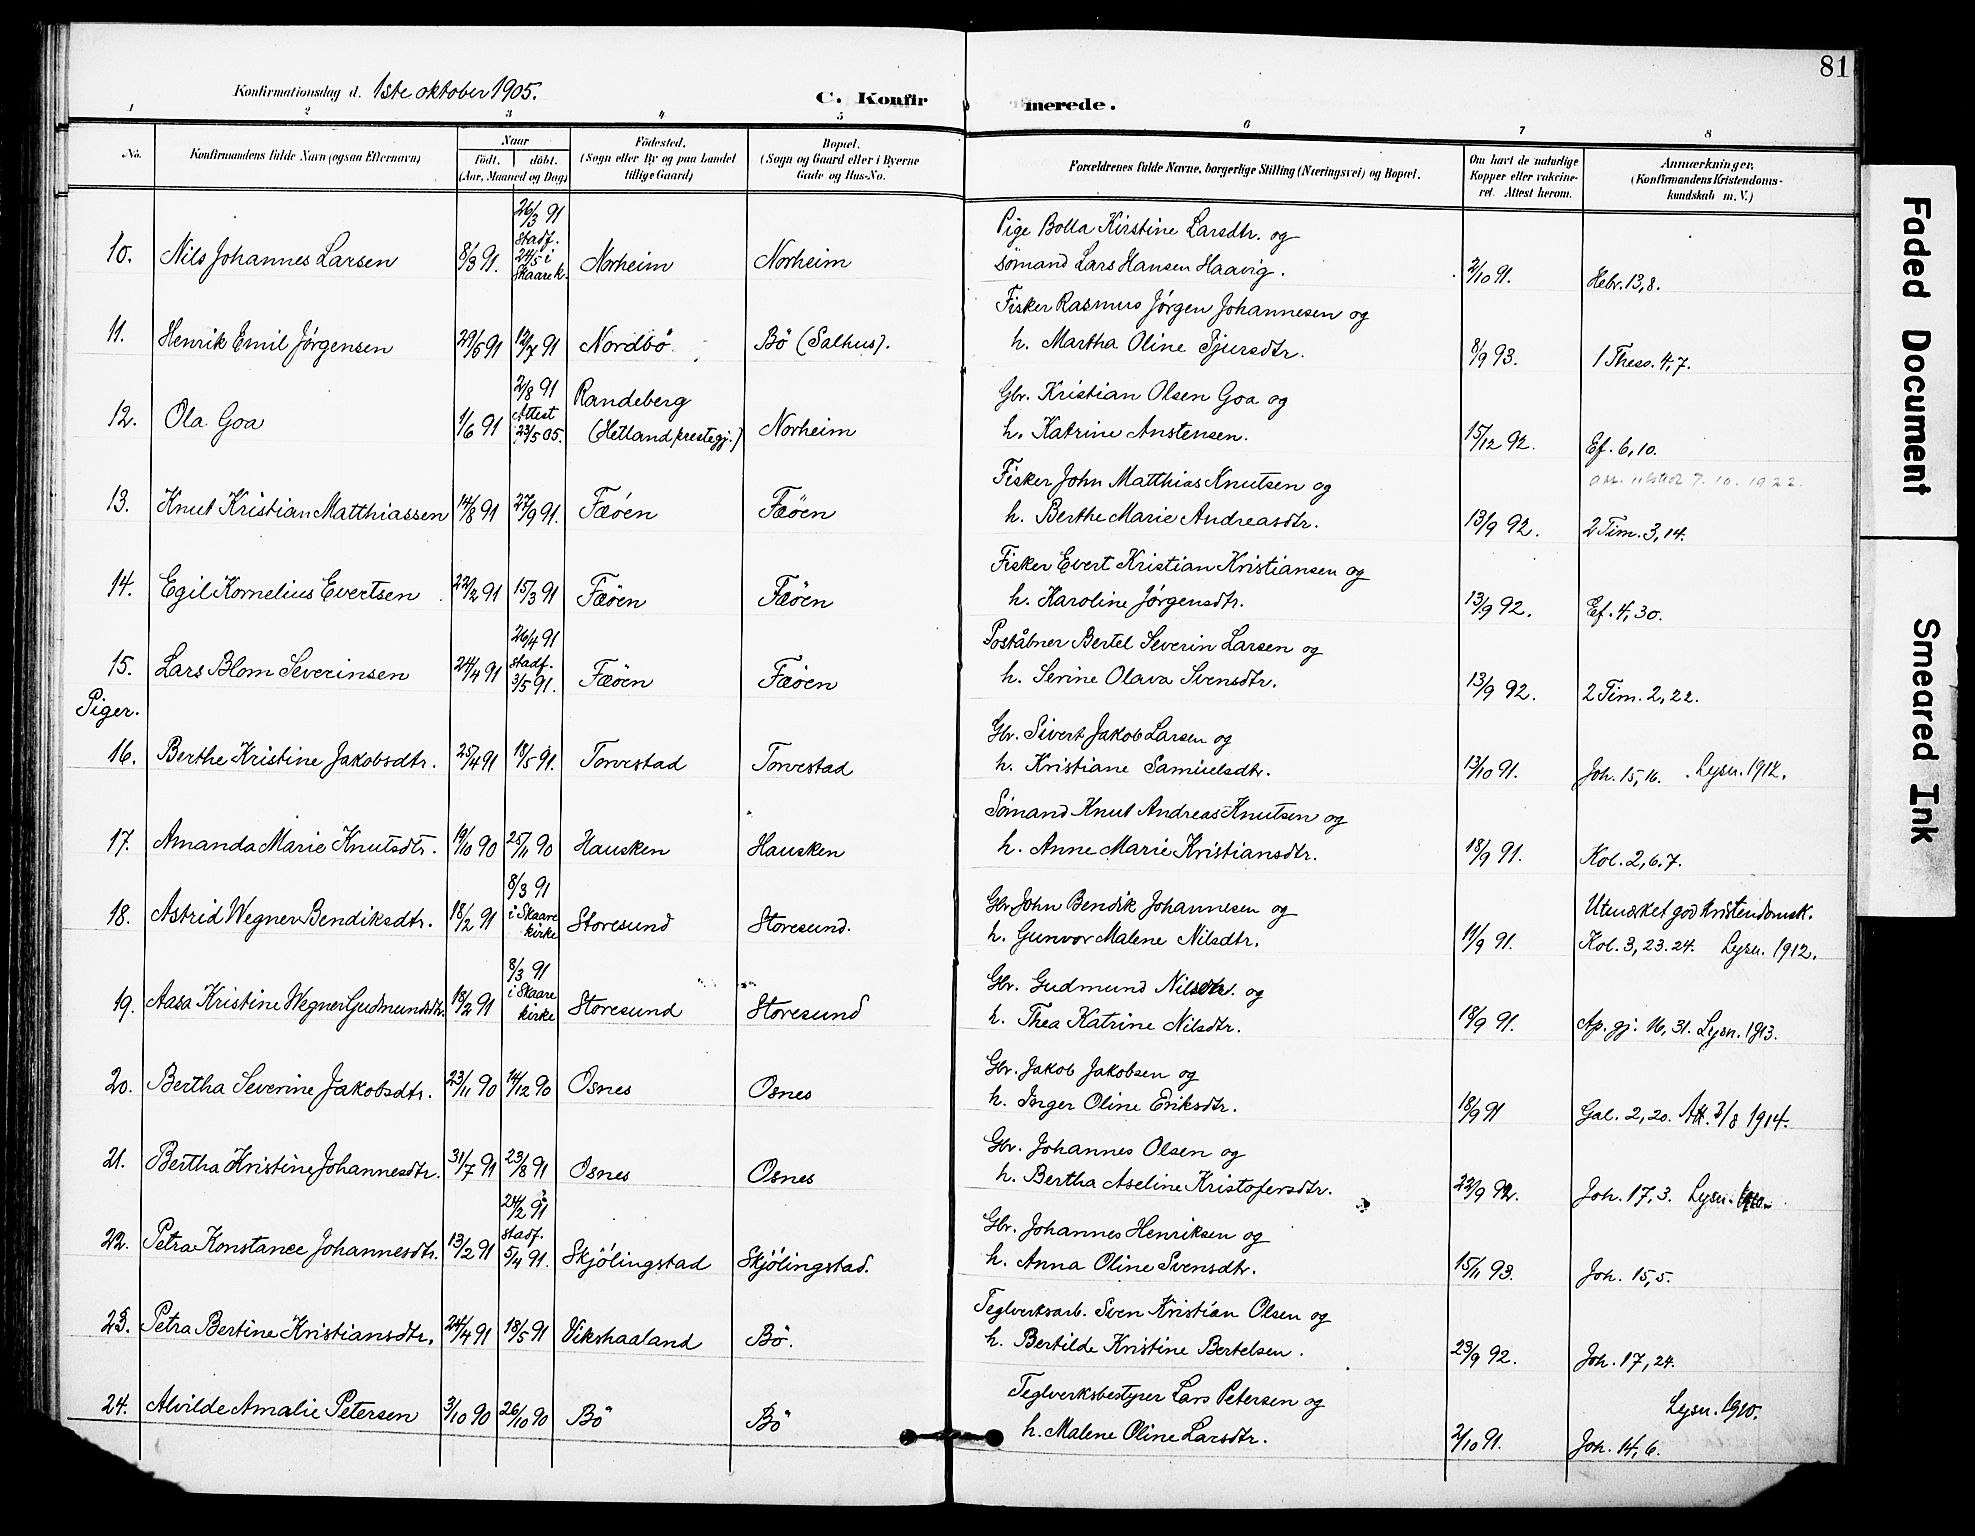 81
Konfirmationsdag d. 1ste oktober 1905.
C. Konfirmerede.
1 2 3 4 5 6 7 8
No. Konfirmandens fulde Navn (ogsaa Efternavn) Naar født. døbt. (Aar, Maaned og Dag) Födested. (Sogn eller By og paa Landet tillige Gaard) Bopæl. (Sogn og Gaard eller i Byerne Gade og Hus-No. Forældrenes fulde Navne, borgerlige Stilling (Næringsvei) og Bopæl. Om havt de naturlige Kopper eller vakcineret. Attest herom. Anmærkninger. (Konfirmandens Kristendomskundskab m. V.)
10. Nils Johannes Larsen 8/3 91. 26/3 91 Stadf. 24/5 i Skaare k. Norheim Norheim Pige Bolla Kirstine Larsdtr. og
sømand Lars Hansen Haavig. 2/10 91. Hebr. 13,8.
11. Henrik Emil Jørgensen 29/5 91 12/7 91 Nordbö Bö (Salhus). Fisker Rasmus Jørgen Johannesen og
h. Martha Oline Sjursdtr. 8/9 93. 1 Thess. 4,7.
12. Ola Goa 1/6 91 2/8 91 Attest 23/5 05. Randeberg (Hetland prestegj.) Norheim Gbr. Kristian Olsen Goa og
h. Katrine Anstensen. 15/12 92. Ef. 6,10.
7.10.1922.
13. Knut Kristian Matthiassen 14/8 91 27/9 91. Fæöen Fæöen Fisker John Matthias Knutsen og
h. Berthe Marie Andreasdtr. 13/9 92. 2 Tim. 3,14.
14. Egil Kornelius Evertsen 22/2 91 15/3 91 Fæöen Fæöen Fisker Evert Kristian Kristiansen og
h. Karoline Jørgensdtr. 13/9 92. Ef. 4,30.
15. Lars Blom Severinsen 24/4 91 26/4 91 stadf. 3/5 91. Fæöen Fæöen Poståbner Bertel Severin Larsen og
h. Serine Olava Svensdtr. 13/9 92. 2 Tim. 2,22.
Piger.
16. Berthe Kristine Jakobsdtr. 25/4 91 18/5 91. Torvestad Torvestad Gbr. Sivert Jakob Larsen og
h. Kristiane Samuelsdtr. 13/10 91. Joh. 15,16. Lysn. 1912.
17. Amanda Marie Knutsdtr. 19/10 90 25/11 90 Hausken Hausken Sømand Knut Andreas Knutsen og
h. Anne Marie Kristiansdtr. 18/9 91. Kol. 2,6.7.
18. Astrid Wegner Bendiksdtr. 18/2 91 8/3 91 i Skaare kirke Storesund Storesund. Gbr John Bendik Johannesen og
h. Gunvor Malene Nilsdtr. 11/9 91. Utmærket god Kristendomsk.
Kol. 3,23.24. Lysn. 1912.
19. Aasa Kristine Wegner Gudmundsdtr. 18/2 91 8/3 91 i Skaare kirke Storesund Storesund Gbr. Gudmund Nilsen og
h. Thea Katrine Nilsdtr. 18/9 91. Ap. gj. 16,31. Lysn. 1913.
20. Bertha Severine Jakobsdtr. 23/11 90 14/12 90 Osnes Osnes Gbr. Jakob Jakobsen og
h. Inger Oline Eriksdtr. 18/9 91 Gal. 2,20. Att. 3/8 1914.
21. Bertha Kristine Johannesdtr. 31/7 91 23/8 91 Osnes Osnes Gbr. Johannes Olsen og
h. Bertha Aseline Kristofersdtr. 22/9 92. Joh. 17,3. Lysn. 1910.
22. Petra Konstance Johannesdtr. 13/2 91 24/2 91 stadf. 5/4 91. Skjölingstad Skjölingstad. Gbr. Johannes Henriksen og
h. Anna Oline Svensdtr. 15/11 93. Joh. 15,5.
23. Petra Bertine Kristiansdtr. 24/4 91 18/5 91 Vikshaaland Bö. Teglverksarb. Sven Kristian Olsen og
h. Bertilde Kristine Bertelsen. 23/9 92. Joh. 17,24.
24. Alvilde Amalie Petersen 3/10 90 26/10 90 Bö Bö Teglverksbestyrer Lars Petersen og
h. Malene Oline Larsdtr. 2/10 91. Lysn. 1910.
Joh. 14,6.
Faded Document
Smeared Ink